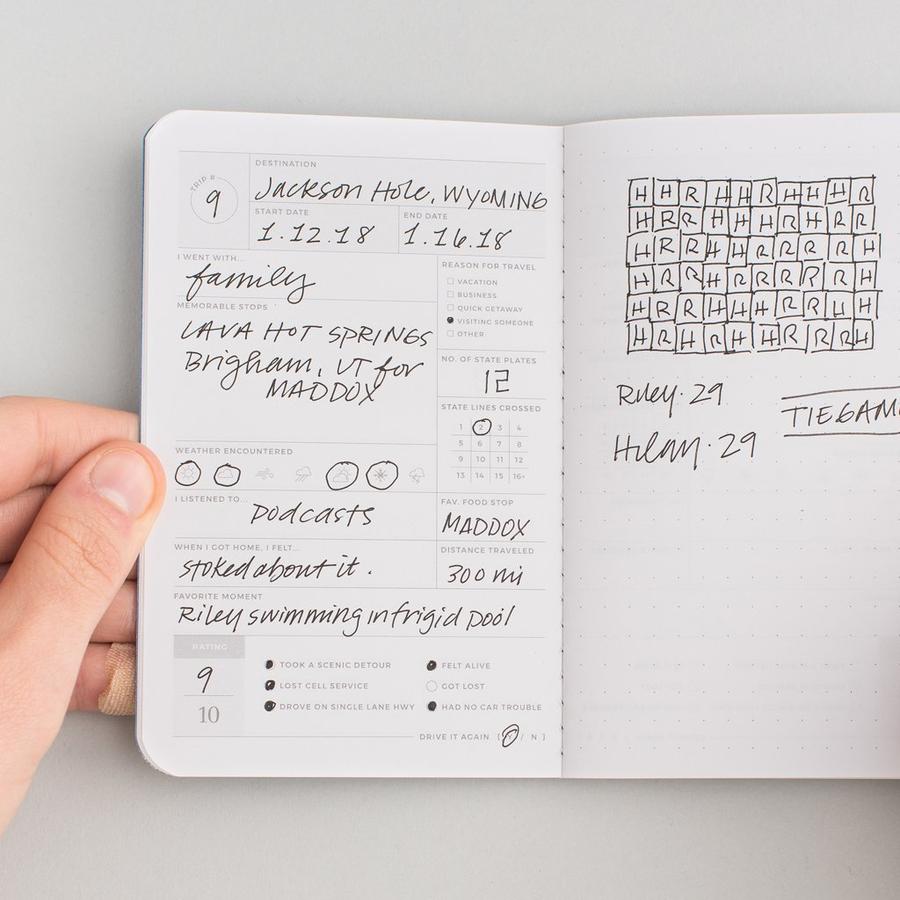 TRIP #
9
DESTINATION
Jackson Hole, WYOMING
START DATE
1.12.18
END DATE
1.16.18
I WENT WITH...
family
MEMORABLE STOPS
LAVA HOT SPRINGS
Brigham, UT for
MADDOX
REASON FOR TRAVEL
VACATION
BUSINESS
QUICK GETAWAY
VISITING SOMEONE
OTHER
NO. OF STATE PLATES
12
STATE LINES CROSSED
1 2 3 4
5 6 7 8
9 10 11 12
13 14 15 16+
WEATHER ENCOUNTERED
I LISTENED TO...
podcasts
FAV. FOOD STOP
MADDOX
WHEN I GOT HOME, I FELT...
stoked about it.
DISTANCE TRAVELED
300 mi
FAVORITE MOMENT
Riley swimming in frigid pool
RATING
9
10
TOOK A SCENIC DETOUR
LOST CELL SERVICE
DROVE ON SINGLE LANE HWY
FELT ALIVE
GOT LOST
HAD NO CAR TROUBLE
DRIVE IT AGAIN [ Y / N ]
H H R H H R H H H R
H R R H H H R H R R
H R R H H R R R R H
H R R H R R R R R H
H R R H H H R R H H
R H R H H R R R H
Riley. 29
29
TIEGAM